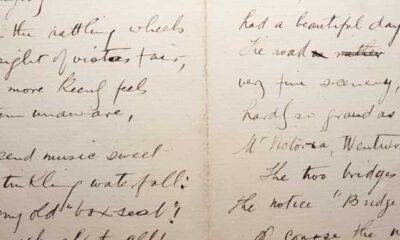 the rattling wheels
sight of vistas fair,
more keenly feels
unaware,
send music sweet
tinkling waterfall:
my old "box seat"!
all!
had a beautiful day
The road rather
very fine scenery,
hardly so grand as
Mt Victoria, Wentwor
The two bridges
the notice "Bridge
of course the n